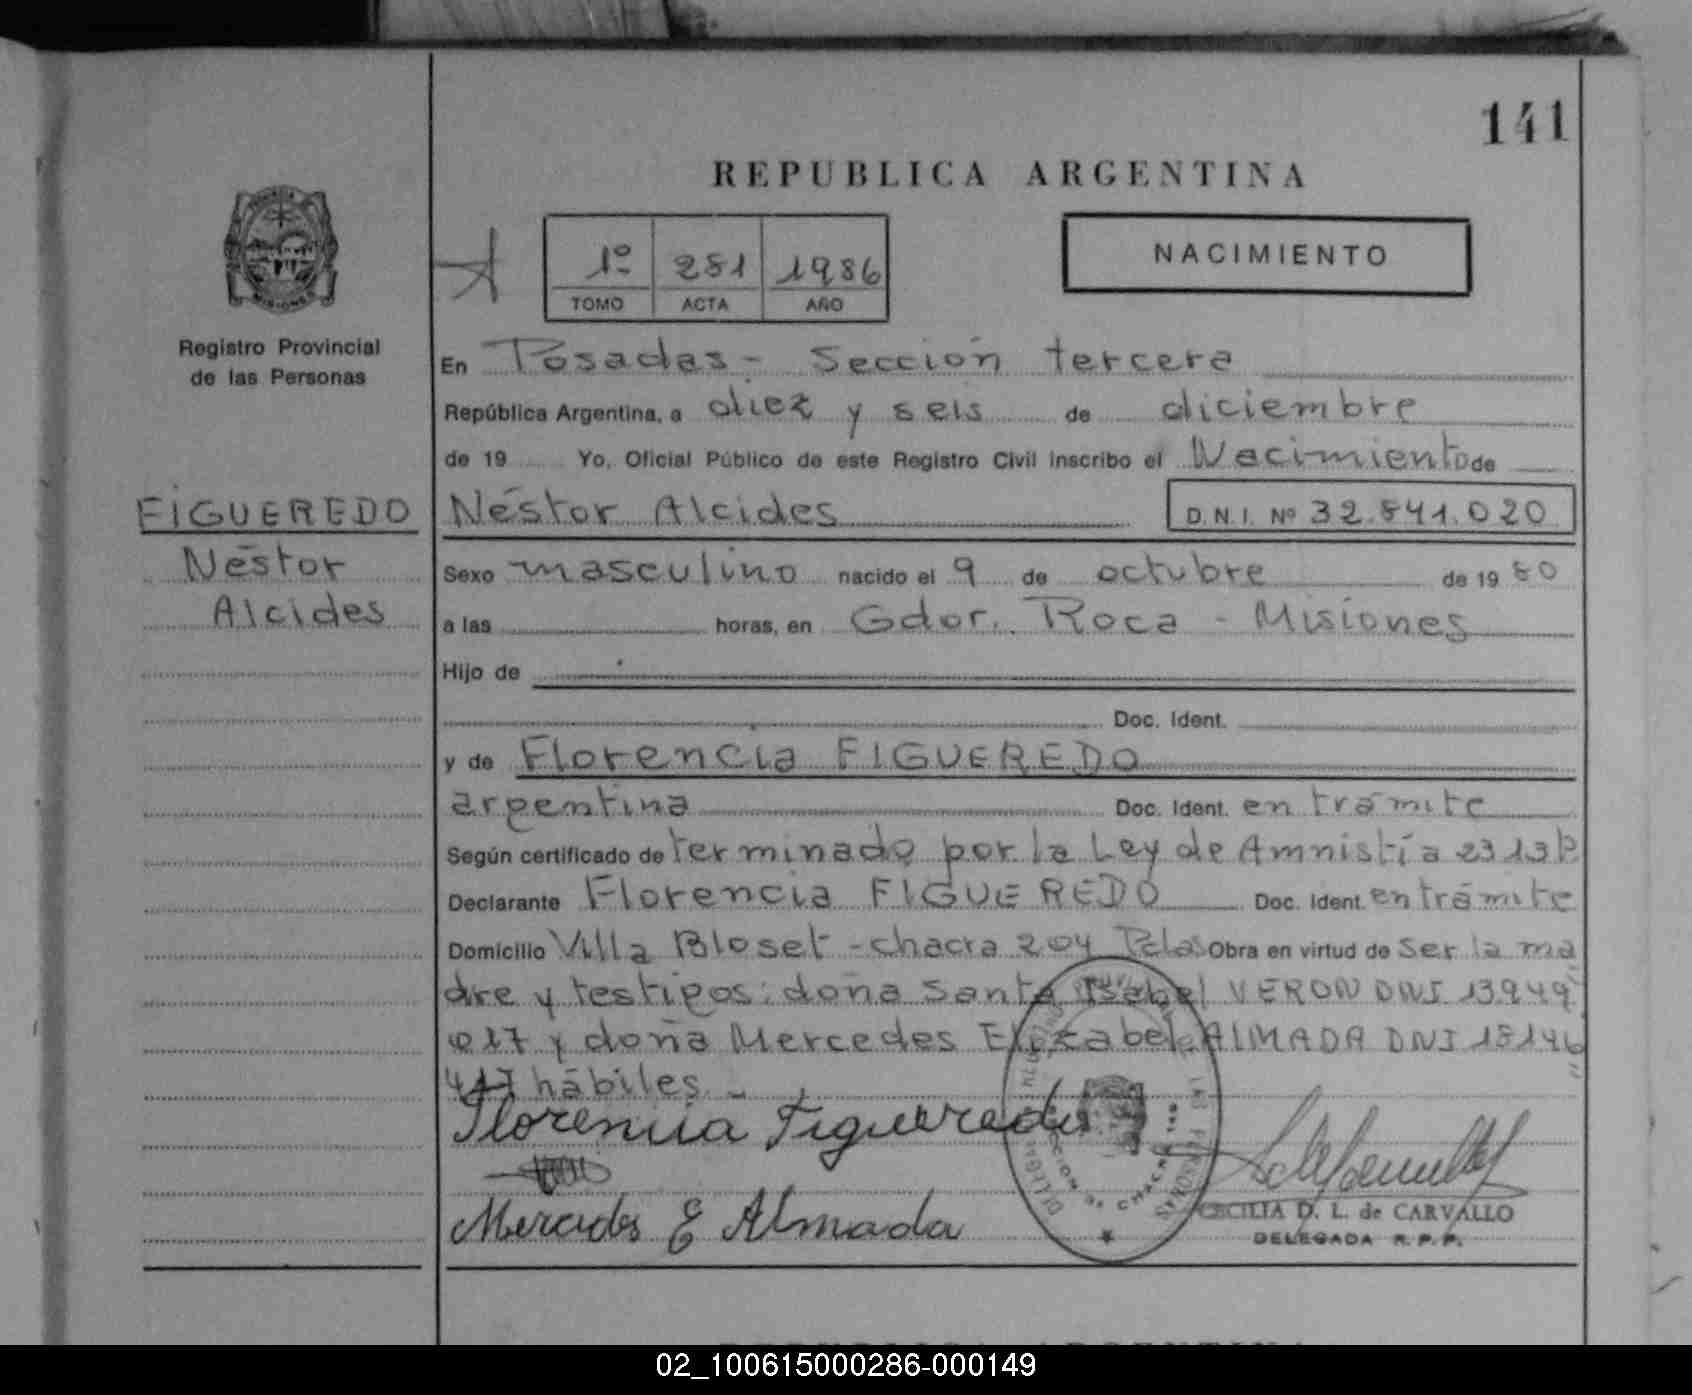 141
REPUBLICA ARGENTINA
1º 281 1986
TOMO ACTA AÑO
NACIMIENTO
MISIONES
Registro Provincial
de las Personas
En Posadas - Sección tercera
República Argentina, a diez y seis de diciembre
de 19 Yo, Oficial Público de este Registro Civil inscribo el Nacimiento de
FIGUEREDO
Néstor
Alcides
Néstor Alcides D.N.I. Nº 32.841.020
Sexo masculino nacido el 9 de octubre de 19 80
a las horas, en Gdor. Roca - Misiones
Hijo de
Doc. Ident.
y de Florencia FIGUEREDO
argentina Doc. Ident. en trámite
Según certificado de terminado por la Ley de Amnistía
Declarante Florencia FIGUEREDO Doc. Ident. en trámite
Domicilio Villa Bloset - chacra 204 Pdas Obra en virtud de ser la ma
dre y testigos: doña Santa Isabel VERON DNI 13.949
017 y doña Mercedes Elizabet ALMADA DNI 18146
417 hábiles. -
Florencia Figueredo
Mercedes E Almada
CECILIA D. L. de CARVALLO
DELEGADA R.P.P.
REPUBLICA ARGENTINA
02_100615000286-000149